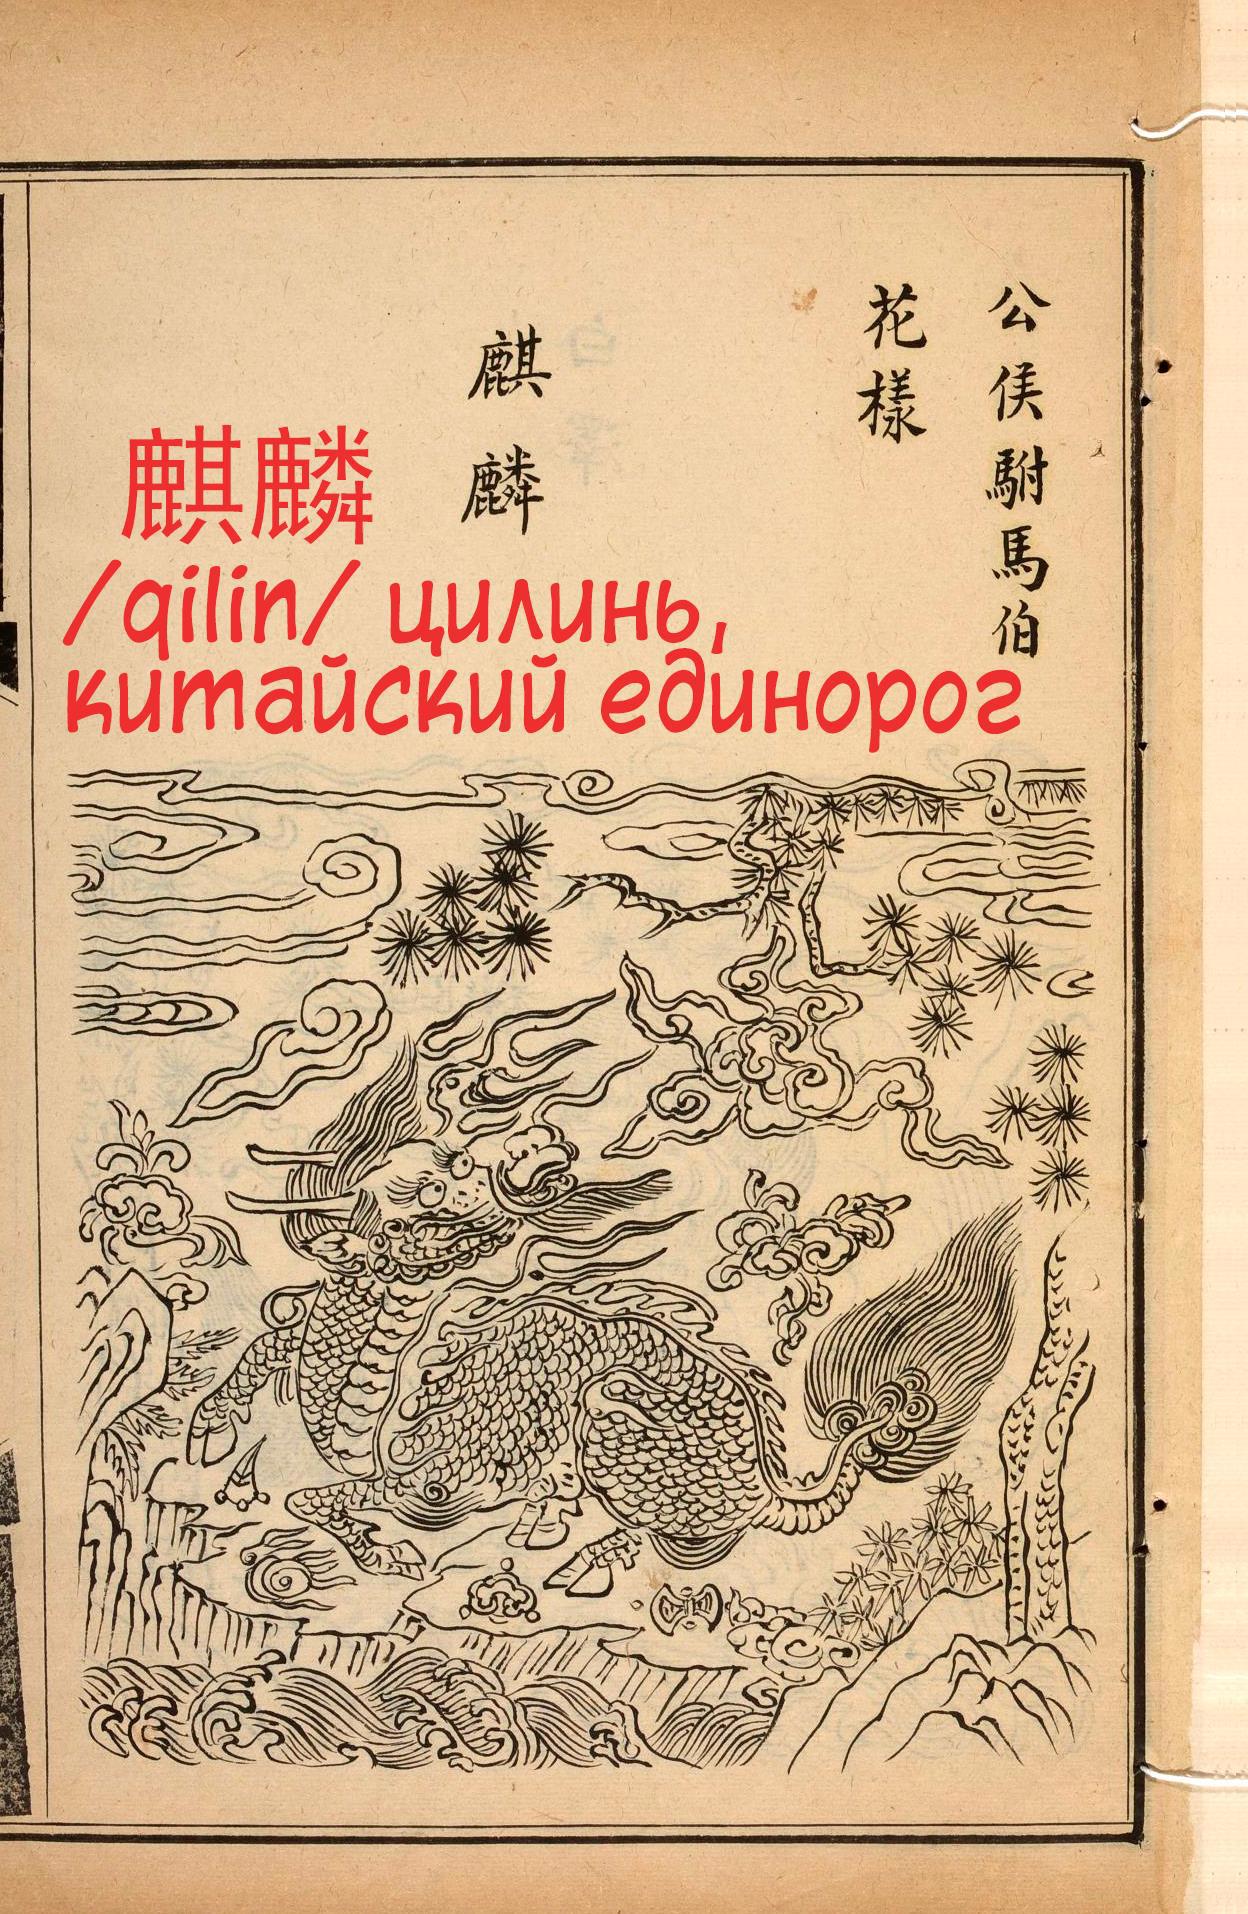 公侯駙馬伯
花樣
麒麟
麒麟
/qilin/ цилинь,
китайский единорог